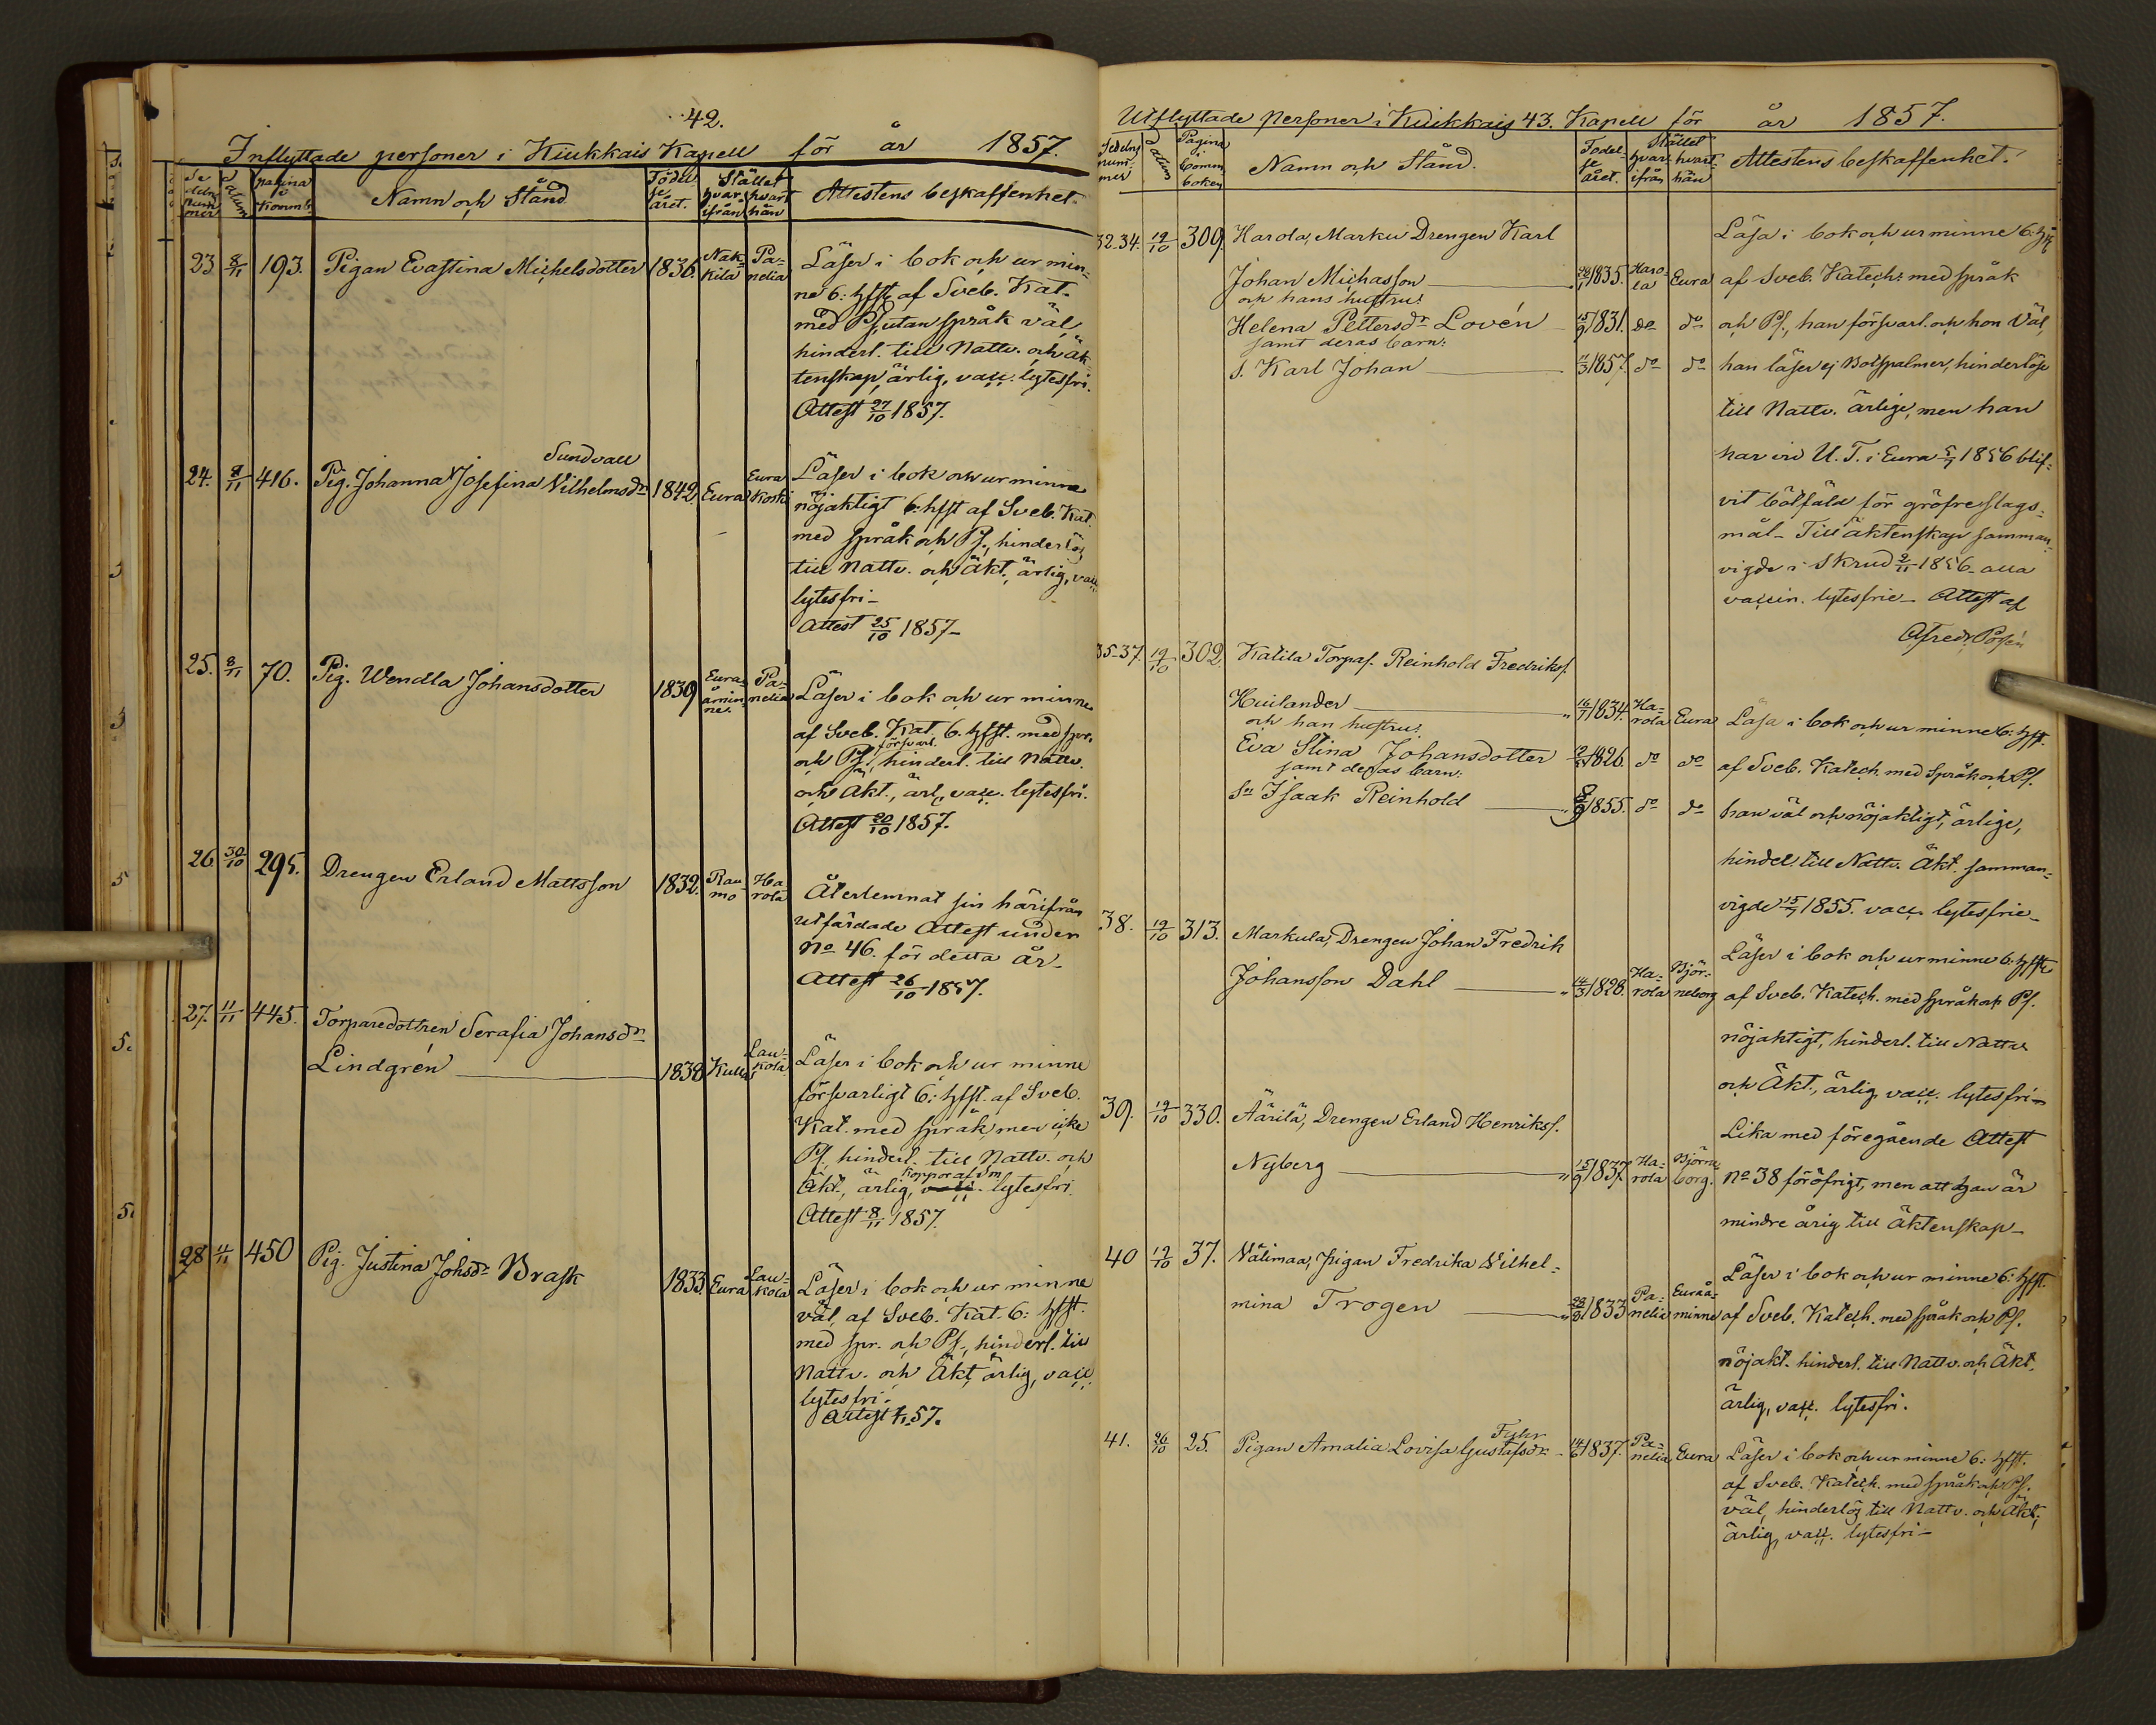 42.
Inflyttade personer i Kiukkais Kapell för år 1857.
Se deln num mer
Datum
pagina i Komm.b.
Namn och Stånd
Födel se året.
Stället
hvar ifrån
hvart hän
Attestens beskaffenhet.
23. 8/11 193. Pigan Evastina Michelsdotter 1836. Nak-kila Pa-nelia
Läser i bok och ur min-
ne 6: hfst af Sveb. Kat.
med Ps, utan språk väl,
hinderl. till Nattv. och äk-
tenskap, ärlig, vacc. lytesfri.
Attest 27/10 1857.
24. 8/11 416. Pig. Johanna Josefina Vilhelmsdr 1842. Eura Eura Koski
Sundvall
Läser i bok och ur minne
nöjaktigt 6: hfst af Sveb. Kat.
med språk och Ps., hinderlös
till Nattv. och Äkt., ärlig, vacc.
lytesfri-
Attest 25/10 1857-
25. 8/11 70. Pig. Wendla Johansdotter 1839 Eura åmin ne. Pa-nelia
Läser i bok och ur minne
af Sveb. Kat. 6. hfst. med spr.
försvarl.
och Ps., hinderl. till Nattv.
och Äkt., ärl, vacc. lytesfri.
Attest 20/10 1857.
26. 30/10 295. Drengen Erland Mattsson 1832. Rau-mo Ha-rola
Återlemnat sin härifrån
utfärdade Attest under
No 46. för detta år-
Attest 26/10 1857.
27. 11/11 445. Torparedottren Serafia Johansdr
Lindgrén 1838 Kulla Lau-kola
Läser i bok och ur minne
försvarligt 6: hfst. af Sveb.
Kat. med språk, men icke
Ps, hinderl. till Nattv. och
Äkt., ärlig, vacc. lytesfri.
Attest 8/11 1857.
28 11/11 450 Pig. Justina Johsdr Brask 1833. Eura Lau-kola
Läser i bok och ur minne
väl, af Sveb. Kat. 6: hfst.
med spr. och Ps., hinderl. till
Nattv. och Äkt, ärlig, vacc.
lytesfri.
Attest 57.
Utflyttade personer i Kiukkais 43. Kapell för år 1857.
Sedelns num mer
Datum
Pagina i Comm boken
Namn och Stånd.
Födel-se året.
Stället
hvar ifrån
hvart hän
Attestens beskaffenhet.
32-34. 19/10 309 Harola, Marku Drengen Karl
Johan Michasson 1835. Haro-la Eura
och hans hustru:
Helena Pettersdr Lovén 15/9 1831. do do
samt deras barn:
s. Karl Johan 11/3 1857. do do
Läsa i bok och ur minne 6: hfst
af Sveb. Katech: med språk
och Ps., han försvarl. och hon Väl,
han läser ej Botspalmer, hinderlöse
till Nattv. ärlige, men han
har vid U. T. i Eura 1856 blif-
vit bötfäld för gröfre slags-
mål- Till äktenskap samman-
vigde i Skrud 2/11 1856- alla
vaccin. lytesfrie- Attest af
35-37. 19/10 302. Katila Torpas. Reinhold Fredrikss.
Huilander 16/7 1834. Ha-rola Eura
och han hustru:
Eva Stina Johansdotter 1826. do do
samt deras barn:
Sn Isaak Reinhold 1855. do do
Läsa i bok och ur minne 6: hfst.
af Sveb. Katech. med Språk och Ps.
han väl och nöjaktigt, ärlige,
hinderl. till Nattv. Äkt. samman-
vigde 15/7 1855. vacc. lytesfrie-
38. 19/10 313. Markula, Drengen Johan Fredrik
Johansson Dahl 14/3 1828. Ha-rola Björ-neborg
Läser i bok och ur minne 6: hfst
af Sveb. Katech. med språk och Ps.
nöjaktigt, hinderl. till Nattv.
och Äkt., ärlig, vacc. lytesfri-
39. 19/10 330. Äärilä, Drengen Erland Henrikss.
Nyberg 15/9 1837. Ha-rola Björne-borg.
Lika med föregående Attest
No 38 föröfrigt, men att han är
mindre årig till äktenskap-
40 19/10 37. Välimaa, pigan Fredrika Wilhel-
mina Trogen 1833 Pa-nelia Euraå-minne
Läser i bok och ur minne 6: hfst.
af Sveb. Katech. med språk och Ps.
nöjakt. hinderl. till Nattv. och Äkt.
ärlig, vacc. lytesfri.
41. 26/10 25. Pigan Amalia Lovisa Gustafsdr 14/6 1837. Pa-nelia Eura
Läser i bok och ur minne 6: hfst.
af Sveb. Katech. med språk och Ps.
väl, hinderlös till Nattv. och Äkt.,
ärlig, vacc. lytesfri-